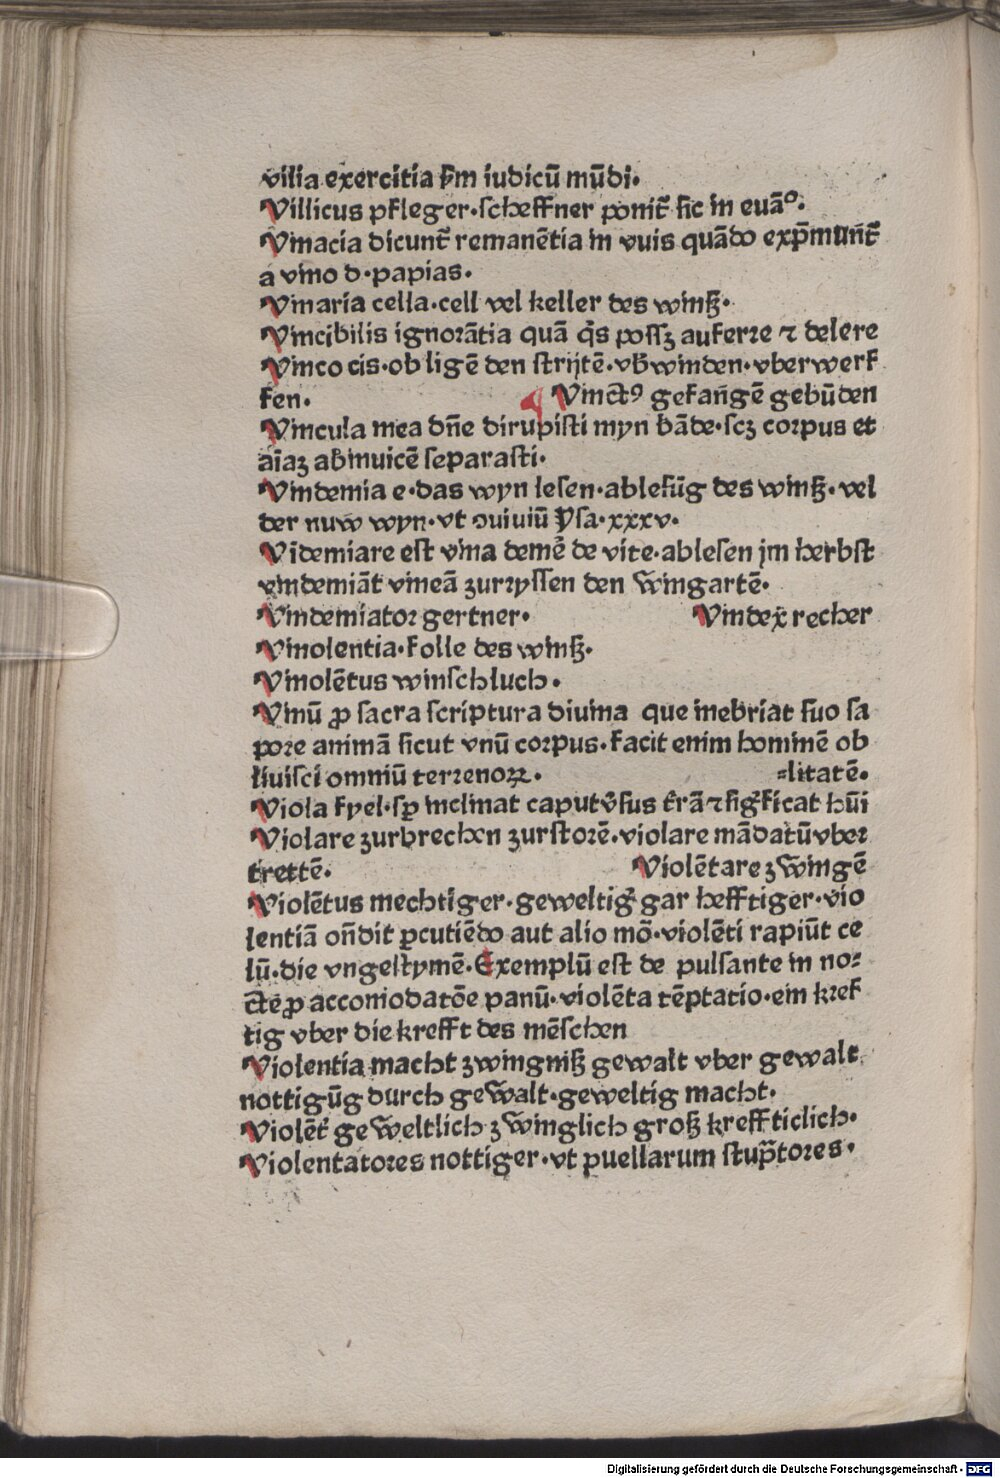 vilia exercitia s̄m iudicū mūdi.
Villicus pfleger·scheffner ponit᷑ sic in euāº.
Vinacia dicunt᷑ remanētia in vuis quādo exp̄munt᷑
a vino d·papias.
Vinaria cella·cell vel keller des winß.
Vincibilis ignorātia quā q̄s possꝫ auferre ⁊ delere
Vinco cis·ob ligē den strijtē·vb̄winden·vberwerf
fen. ¶ Vinctꝰ gefangē gebūden
Vincula mea dn̄e dirupisti myn bāde·scꝫ corpus et
aīaꝫ abinuicē separasti.
Vindemia e·das wyn lesen·ablesūg des winß·vel
der nuw wyn·vt ↄuiuiū Ysa·xxxv.
Videmiare est vina demē de vite·ablesen jm herbst
vindemiāt vineā zurryssen den wingartē.
Vindemiator gertner. Vindex recher
Vinolentia·folle des winß.
Vinolētus winschluch.
Vinū ꝓ sacra scriptura diuina que inebriat suo sa
pore animā sicut vnū corpus·facit enim hominē ob
liuisci omniū terrenoꝝ. =litatē.
Viola fyel·sꝑ inclinat caput v̄sus t̄rā ⁊ siḡficat hūi
Violare zurbrechen zurstorē·violare mādatū vber
trettē. Violētare zwingē
Violētus mechtiger·geweltiḡ gar hefftiger·vio
lentiā on̄dit ꝑcutiēdo aut alio mō·violēti rapiūt ce
lū·die vngestymē·Exemplū est de pulsante in no⸗
cte ꝓ accomodatōe panū·violēta tēptatio·ein kref
tig vber die krefft des mēschen
Violentia macht zwingniß gewalt vber gewalt
nottigūg durch gewalt·geweltig macht.
Violēt᷑ geweltlich zwinglich groß kreffticlich.
Violentatores nottiger·vt puellarum stup̄tores.
Digitalisierung gefördert durch die Deutsche Forschungsgemeinschaft - DFG